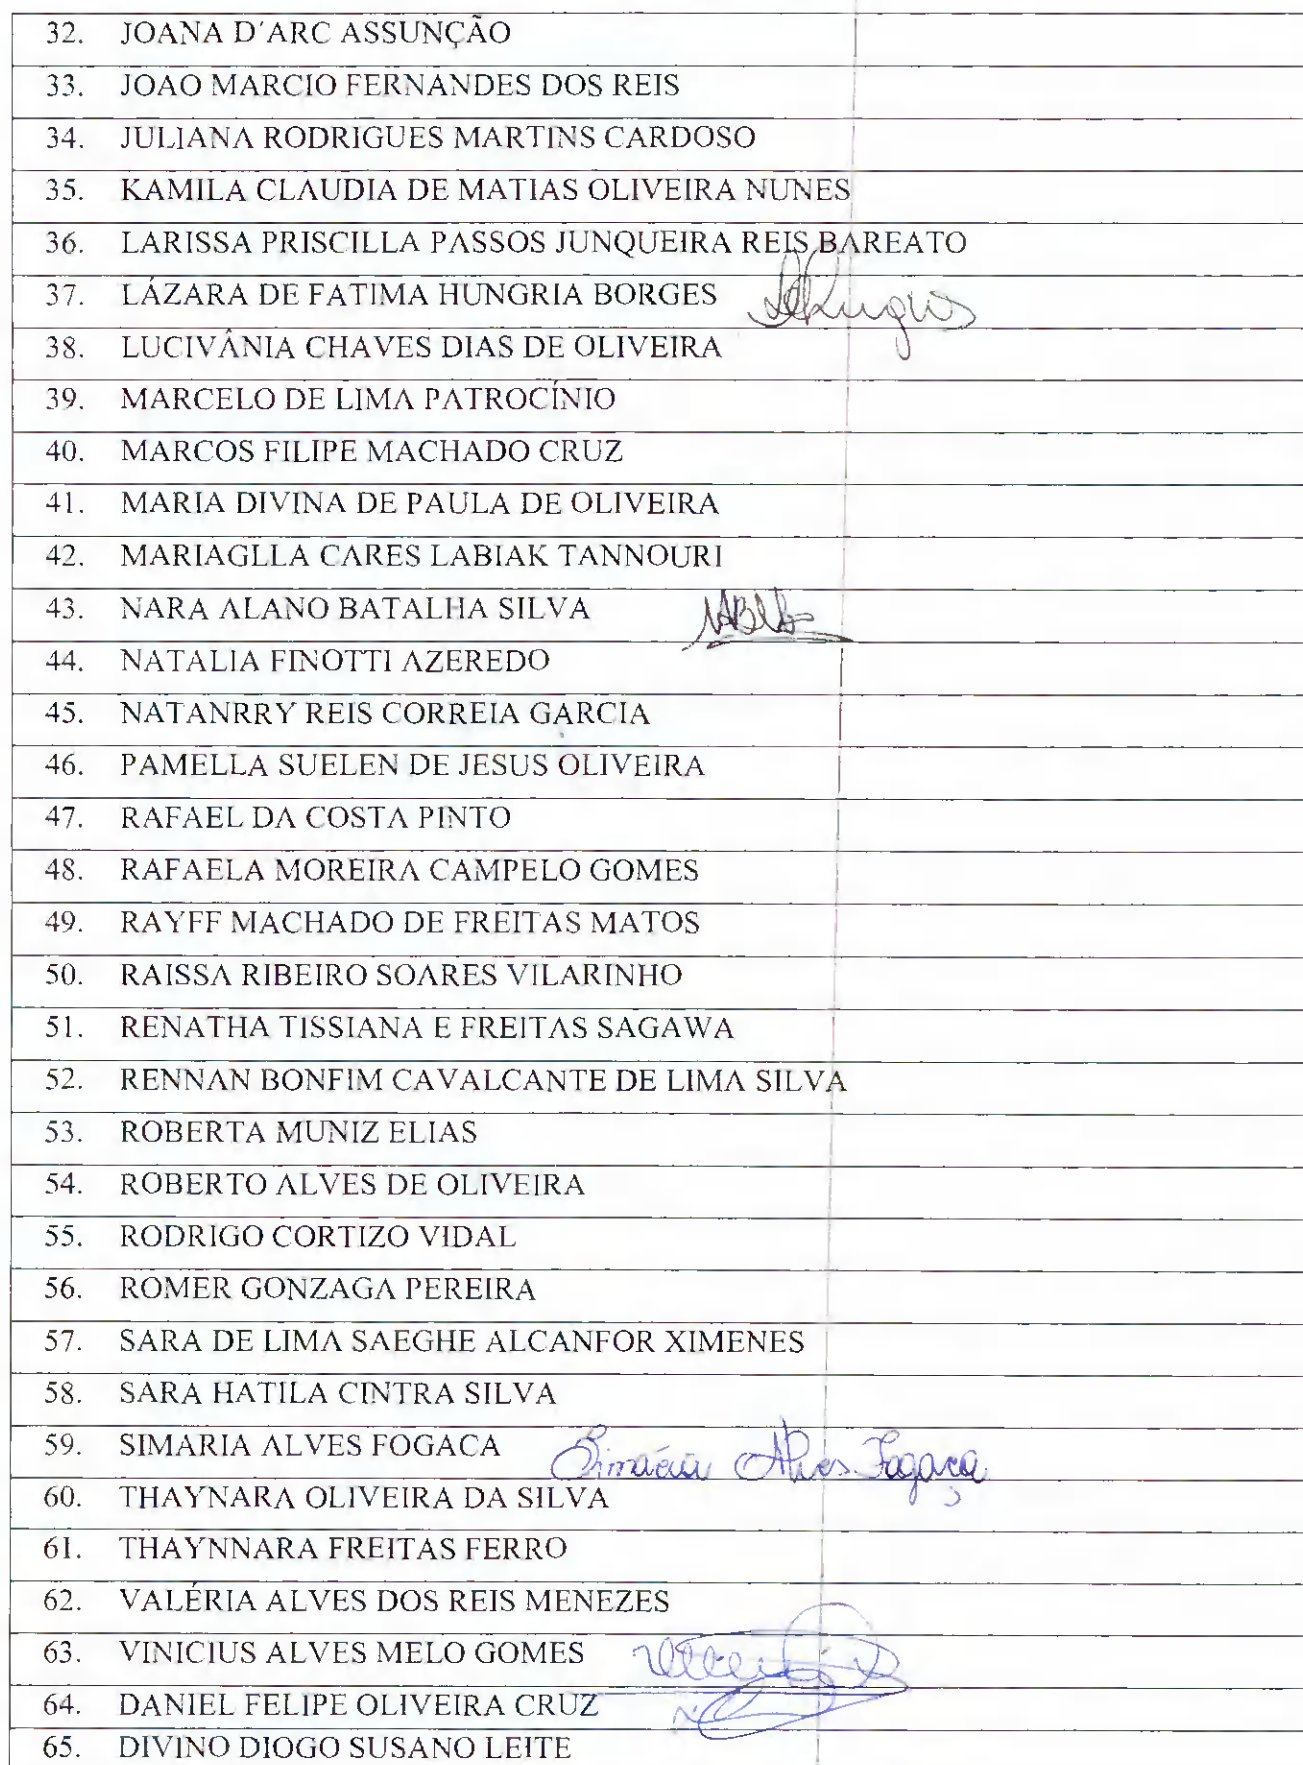 32. JOANA D'ARC ASSUNÇÃO
33. JOAO MARCIO FERNANDES DOS REIS
34. JULIANA RODRIGUES MARTINS CARDOSO
35. KAMILA CLAUDIA DE MATIAS OLIVEIRA NUNES
36. LARISSA PRISCILLA PASSOS JUNQUEIRA REIS BAREATO
37. LÁZARA DE FATIMA HUNGRIA BORGES
38. LUCIVÂNIA CHAVES DIAS DE OLIVEIRA
39. MARCELO DE LIMA PATROCÍNIO
40. MARCOS FILIPE MACHADO CRUZ
41. MARIA DIVINA DE PAULA DE OLIVEIRA
42. MARIAGLLA CARES LABIAK TANNOURI
43. NARA ALANO BATALHA SILVA
44. NATALIA FINOTTI AZEREDO
45. NATANRRY REIS CORREIA GARCIA
46. PAMELLA SUELEN DE JESUS OLIVEIRA
47. RAFAEL DA COSTA PINTO
48. RAFAELA MOREIRA CAMPELO GOMES
49. RAYFF MACHADO DE FREITAS MATOS
50. RAISSA RIBEIRO SOARES VILARINHO
51. RENATHA TISSIANA E FREITAS SAGAWA
52. RENNAN BONFIM CAVALCANTE DE LIMA SILVA
53. ROBERTA MUNIZ ELIAS
54. ROBERTO ALVES DE OLIVEIRA
55. RODRIGO CORTIZO VIDAL
56. ROMER GONZAGA PEREIRA
57. SARA DE LIMA SAEGHE ALCANFOR XIMENES
58. SARA HATILA CINTRA SILVA
59. SIMARIA ALVES FOGACA Simária Alves Fogaça
60. THAYNARA OLIVEIRA DA SILVA
61. THAYNNARA FREITAS FERRO
62. VALÉRIA ALVES DOS REIS MENEZES
63. VINICIUS ALVES MELO GOMES
64. DANIEL FELIPE OLIVEIRA CRUZ
65. DIVINO DIOGO SUSANO LEITE